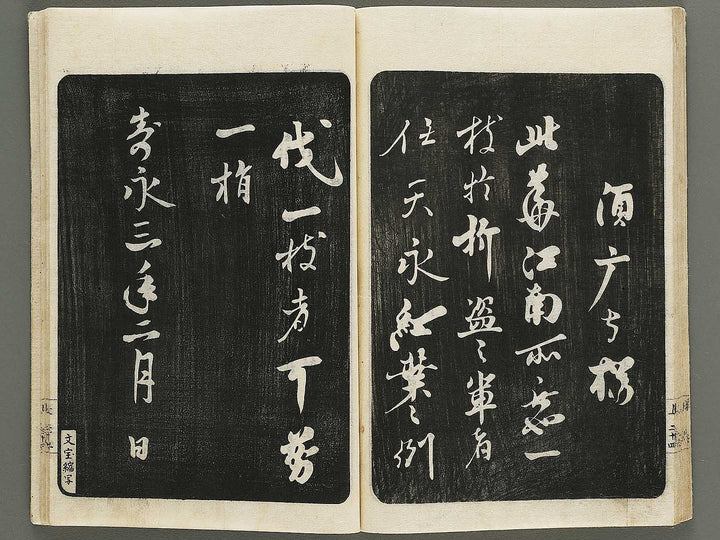 須广寺桜
此華江南所無也一
枝於折盗之輩者
任天永紅葉之例
伐一枝者可剪
一指
寿永三年二月日
文宝縮写